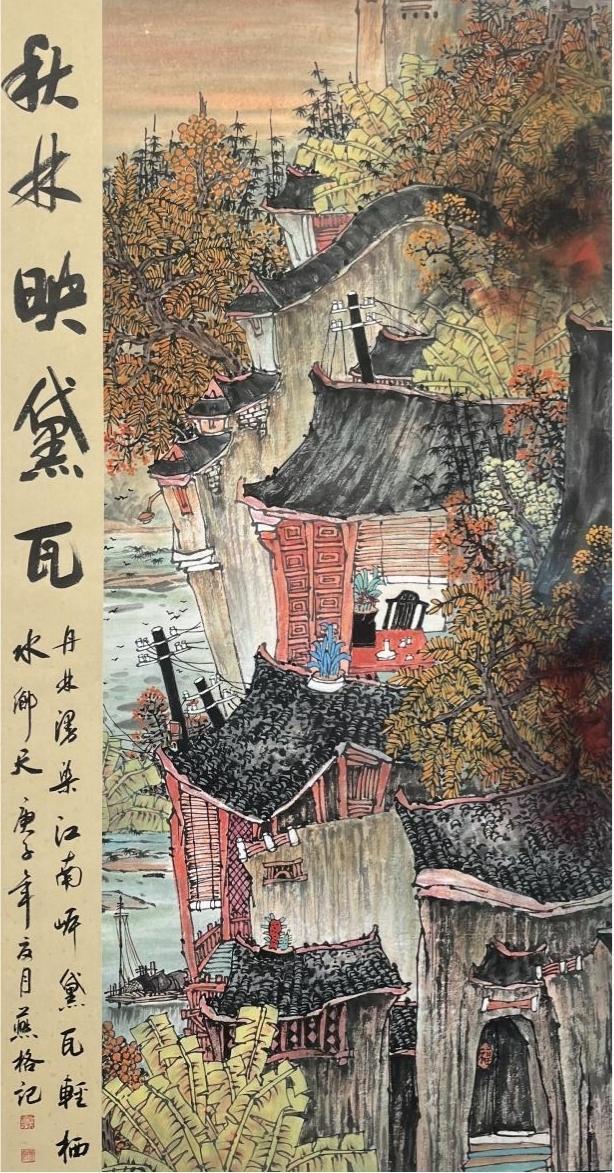 秋林映黛瓦
丹林漫染江南岸黛瓦輕栖
水鄉天 庚子年月燕格記